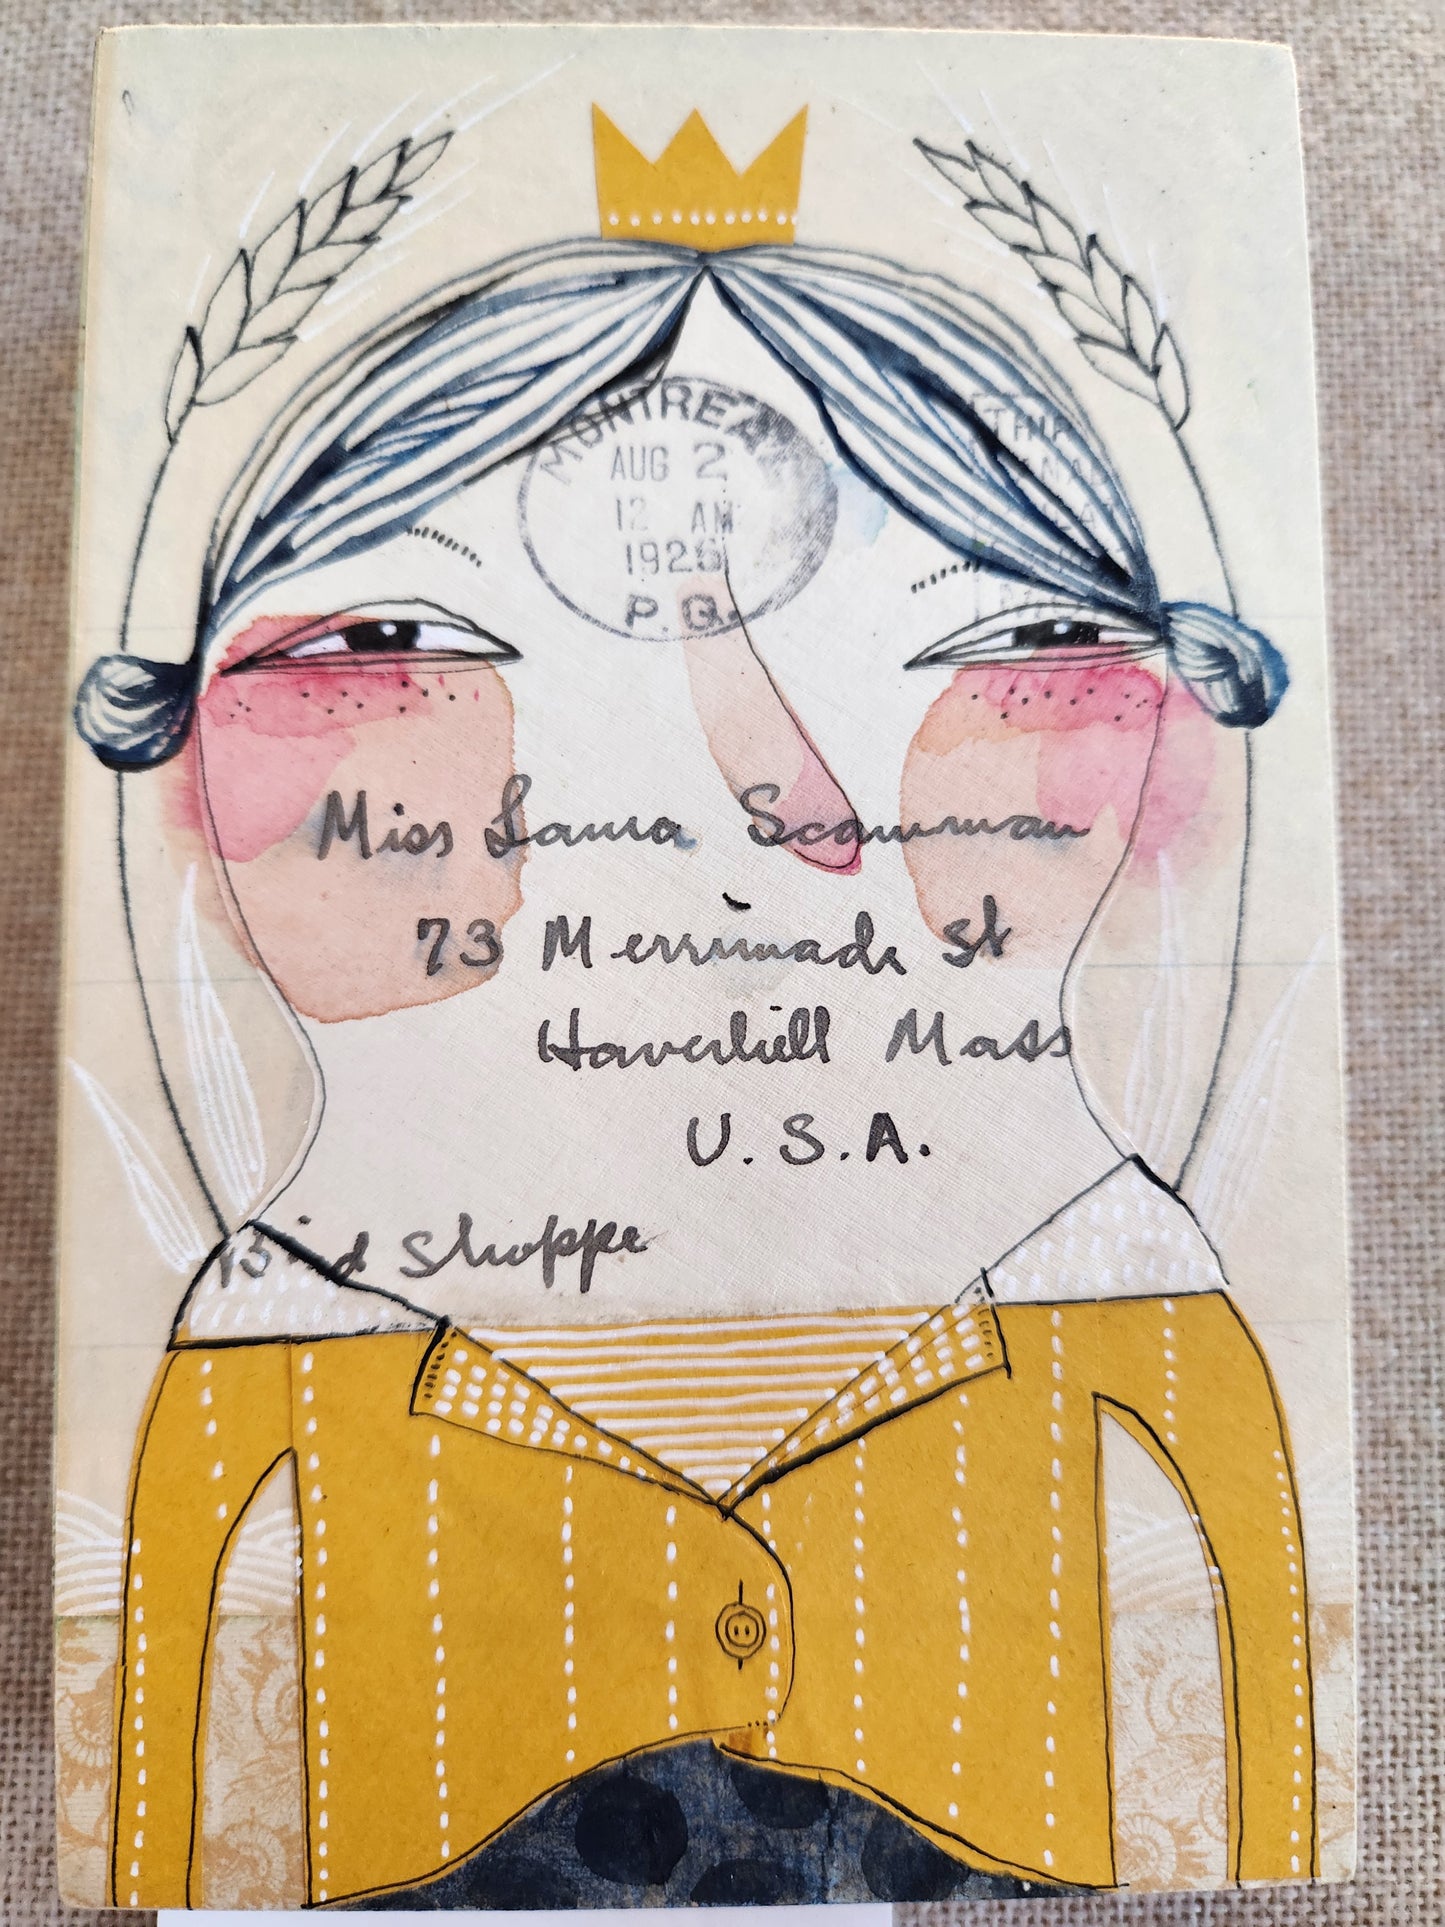 MONTREAL
AUG 2
12 AM
1926
P.Q.
Miss Laura Scammman
73 Merrimade St
Haverhill Mass
U.S.A.
Shoppe